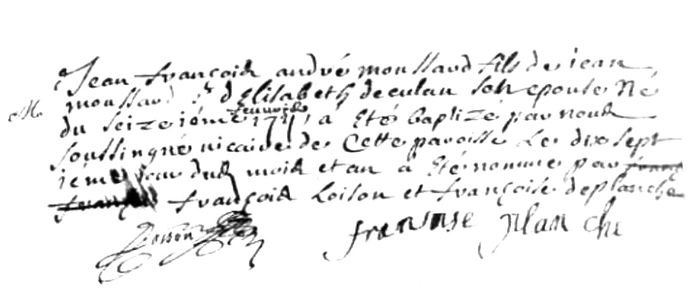 Jean françois andré moussaud fils de jean
moussaud & d'Elisabeth deculan son epouse Né
feuvrier
du seizeiéme 1711 a Eté baptizé par nous
soussingné vicaire de Cette paroisse Le dix sept
iéme jour dud mois et an a Eté nommé par
françois Loison et françoise deplanche
Loison fransoise plan che